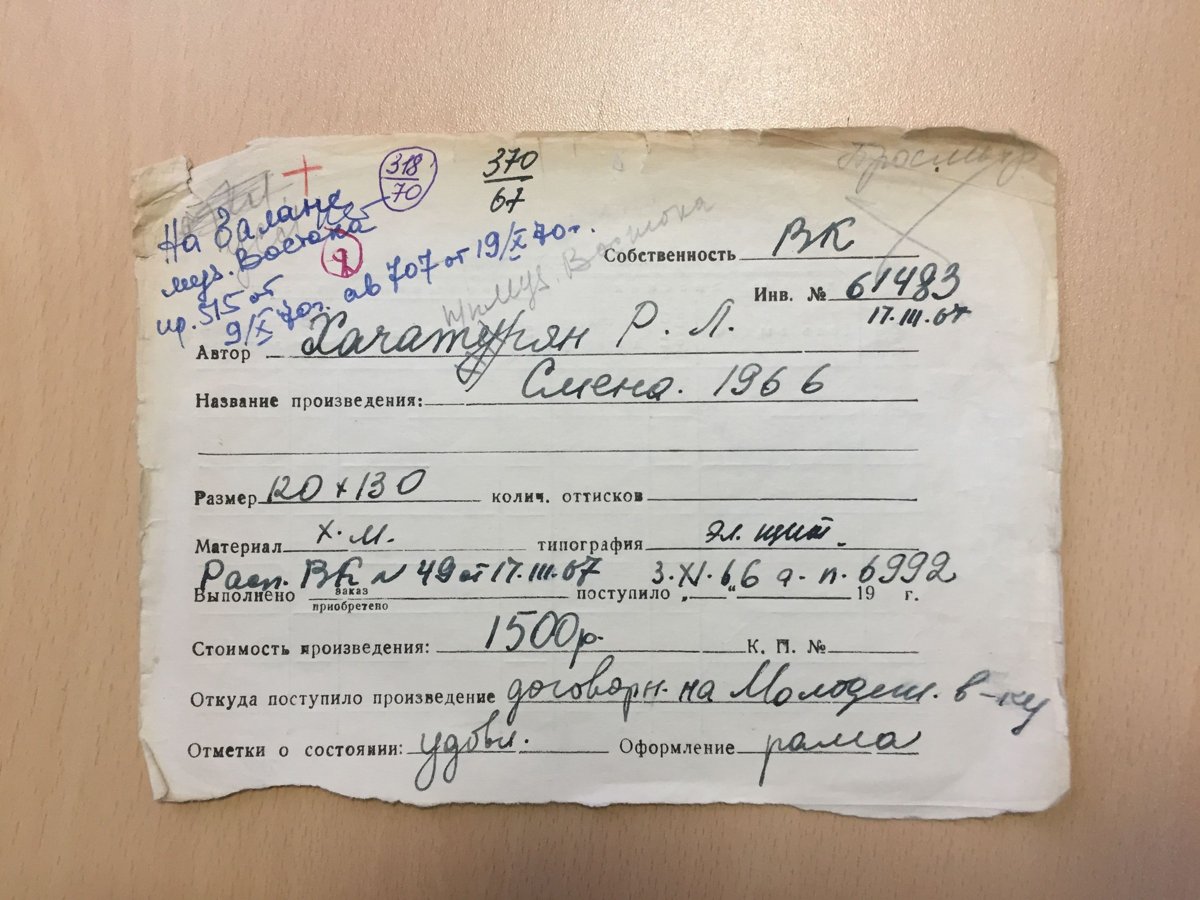 318
70
370
67
На балане
муз. Востока
пр. 515 от
9/X 70г. ав 707 от 19/X 70г.
муз. Востока
Собственность ВК
Инв. № 61483
17.III.67
Автор Хачатурян Р. Л.
Название произведения: Смена. 1966
Размер 120 х 130 колич. оттисков
Материал х.м. типография эл. щит.
Расп. ВК № 49 от 17.III.67 3.XI.66 а-п. 6992
Выполнено заказ приобретено поступило „ “ 19 г.
Стоимость произведения: 1500р. К. П. №
Откуда поступило произведение договорн. на Молодеж. в-ку
Отметки о состоянии: удовл. Оформление рама